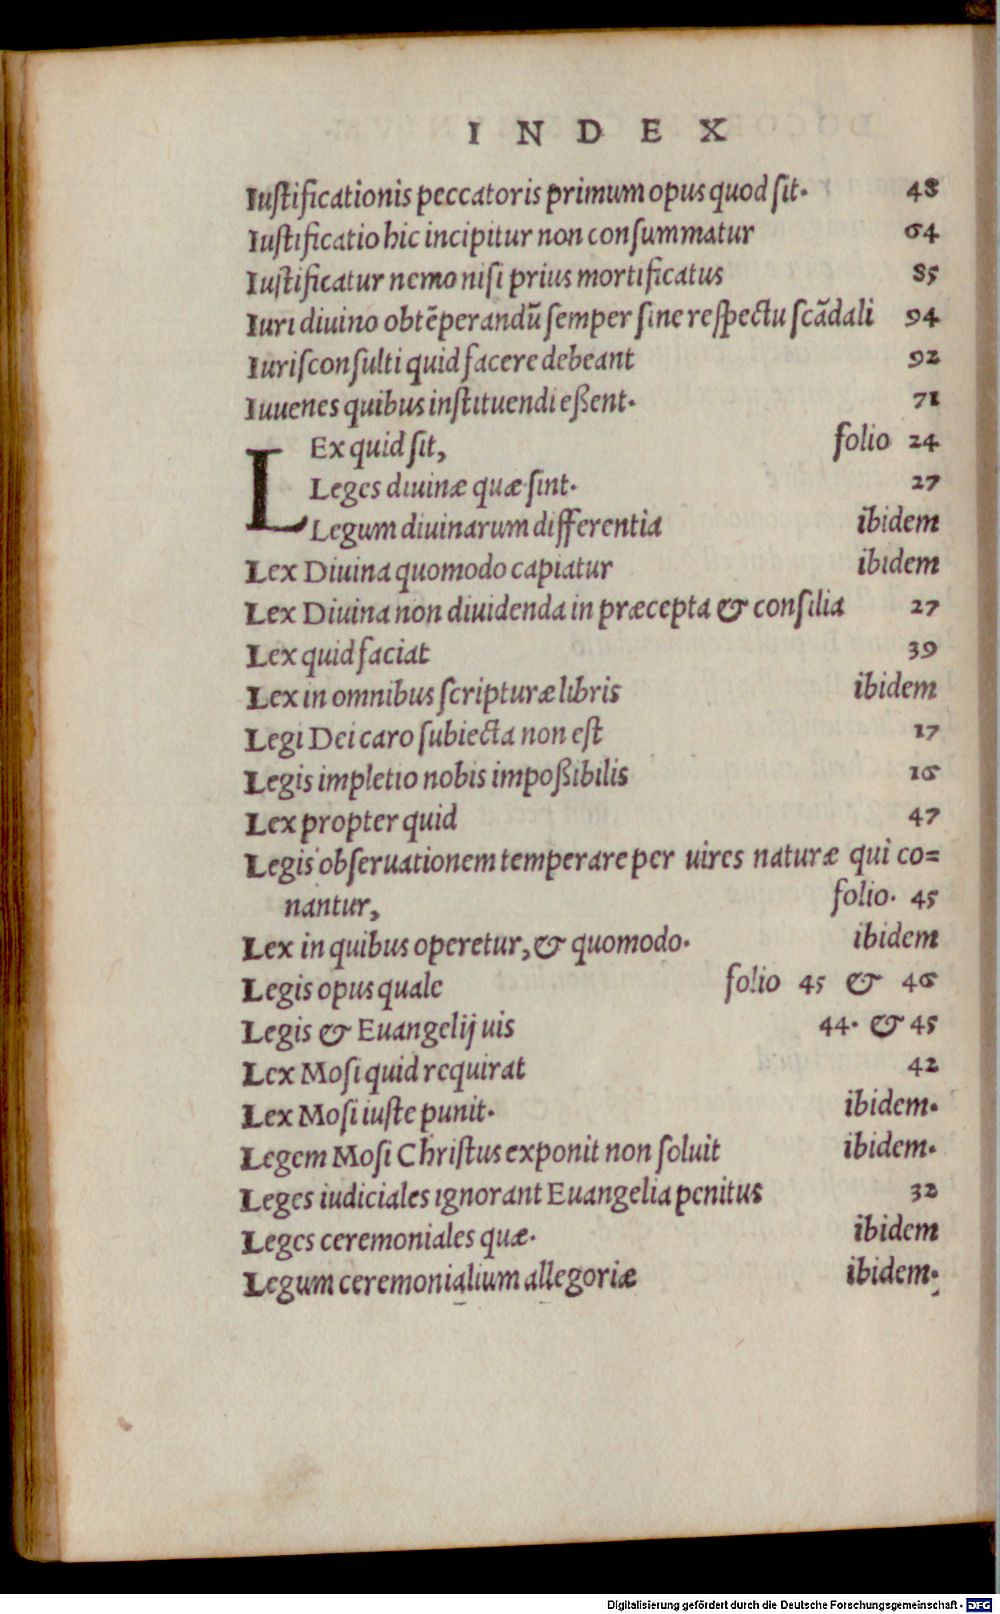 INDEX
Iuſtificationis peccatoris primum opus quod ſit. 48
Iuſtificatio hic incipitur non conſummatur 64
Iuſtificatur nemo niſi prius mortificatus 85
Iuri diuino obtẽperandũ ſemper ſine reſpectu ſcãdali 94
Iuriſconſulti quid facere debeant 92
Iuuenes quibus inſtituendi eßent. 71
LEx quid ſit, folio 24
Leges diuinæ quæ ſint. 27
Legum diuinarum differentia ibidem
Lex Diuina quomodo capiatur ibidem
Lex Diuina non diuidenda in præcepta & conſilia 27
Lex quid faciat 39
Lex in omnibus ſcripturæ libris ibidem
Legi Dei caro ſubiecta non eſt 17
Legis impletio nobis impoßibilis 16
Lex propter quid 47
Legis obſeruationem temperare per uires naturæ qui co=
nantur, folio. 45
Lex in quibus operetur, & quomodo. ibidem
Legis opus quale folio 45 & 46
Legis & Euangelij uis 44. & 45
Lex Moſi quid requirat 42
Lex Moſi iuſte punit. ibidem.
Legem Moſi Chriſtus exponit non ſoluit ibidem.
Leges iudiciales ignorant Euangelia penitus 32
Leges ceremoniales quæ. ibidem
Legum ceremonialium allegoriæ ibidem.
Digitalisierung gefördert durch die Deutsche Forschungsgemeinschaft - DFG